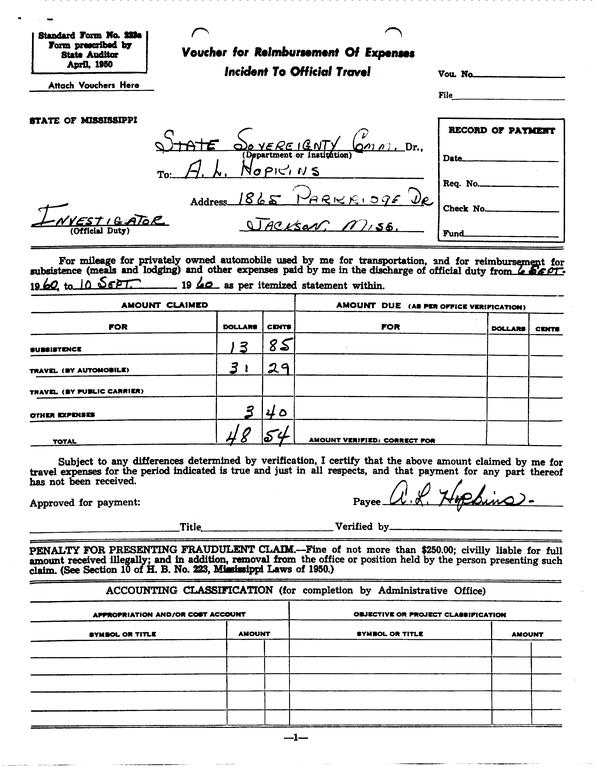 Standard Form No. 223a
Form prescribed by
State Auditor
April, 1950
Attach Vouchers Here
Voucher for Reimbursement Of Expenses
Incident To Official Travel
Vou. No.
File
STATE OF MISSISSIPPI
STATE SOVEREIGNTY COMM. Dr.,
(Department or Institution)
To: A. L. HOPKINS
Address 1865 PARKRIDGE DR
JACKSON, MISS.
INVESTIGATOR
(Official Duty)
RECORD OF PAYMENT
Date
Req. No.
Check No.
Fund
For mileage for privately owned automobile used by me for transportation, and for reimbursement for
subsistence (meals and lodging) and other expenses paid by me in the discharge of official duty from 6 SEPT.
1960, to 10 SEPT. 1960 as per itemized statement within.
AMOUNT CLAIMED AMOUNT DUE (AS PER OFFICE VERIFICATION)
FOR DOLLARS CENTS FOR DOLLARS CENTS
SUBSISTENCE 13 85
TRAVEL (BY AUTOMOBILE) 31 29
TRAVEL (BY PUBLIC CARRIER)
OTHER EXPENSES 3 40
TOTAL 48 54 AMOUNT VERIFIED: CORRECT FOR
Subject to any differences determined by verification, I certify that the above amount claimed by me for
travel expenses for the period indicated is true and just in all respects, and that payment for any part thereof
has not been received.
Approved for payment: Payee A. L. Hopkins-
Title Verified by
PENALTY FOR PRESENTING FRAUDULENT CLAIM.—Fine of not more than $250.00; civilly liable for full
amount received illegally; and in addition, removal from the office or position held by the person presenting such
claim. (See Section 10 of H. B. No. 223, Mississippi Laws of 1950.)
ACCOUNTING CLASSIFICATION (for completion by Administrative Office)
APPROPRIATION AND/OR COST ACCOUNT OBJECTIVE OR PROJECT CLASSIFICATION
SYMBOL OR TITLE AMOUNT SYMBOL OR TITLE AMOUNT
—1—